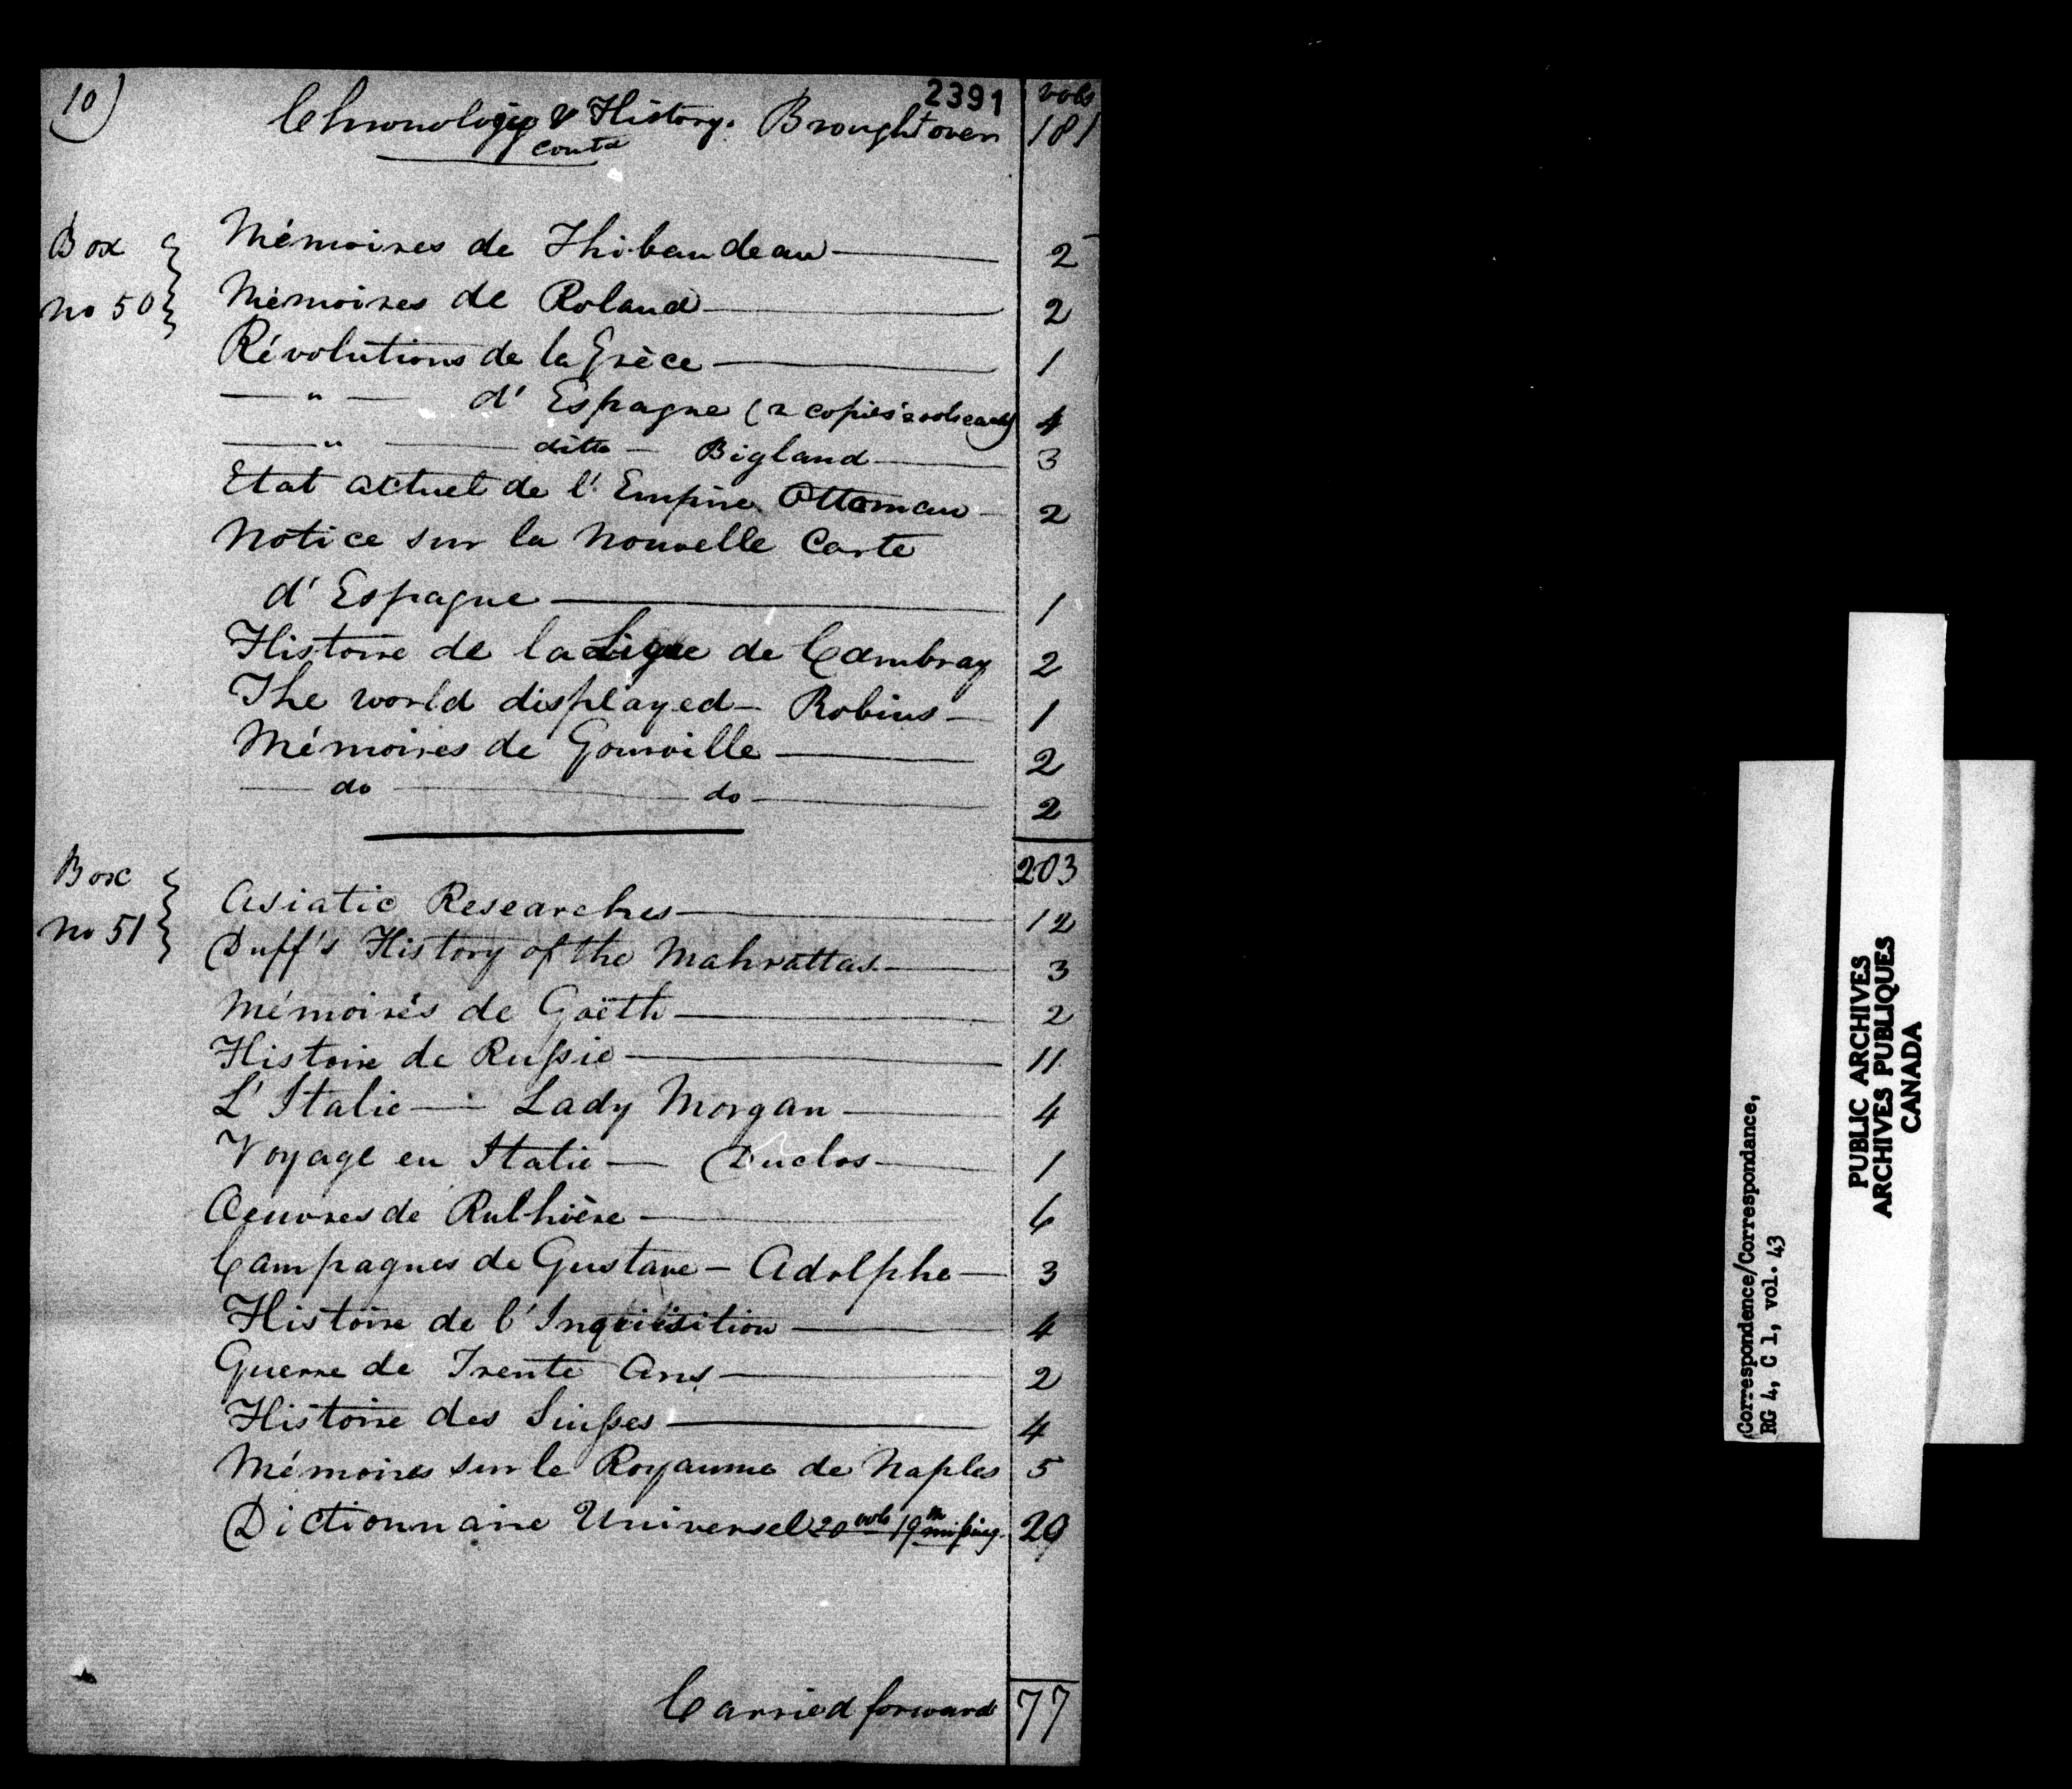 10)
2391
vols
Chronologie & History. Brought over 181
contd
Box No 50
Mémoires de Thibaudeau — 2
Mémoires de Roland — 2
Révolutions de la Grèce — 1
— " — d'Espagne (2 copies 2 vols each) 4
— " — ditto — Bigland — 3
Etat actuel de l'Empire Ottoman — 2
Notice sur la nouvelle Carte
d'Espagne — 1
Histoire de la Ligue de Cambray 2
The world displayed — Robins — 1
Mémoires de Gourville — 2
— do — do — 2
203
Box No 51
Asiatic Researches — 12
Duff's History of the Mahrattas — 3
Mémoirés de Gaëth — 2
Histoire de Russie — 11
L'Italie — Lady Morgan — 4
Voyage en Italie — Duclos — 1
Oeuvres de Rulhière — 6
Campagnes de Gustave - Adolphe — 3
Histoire de l'Inquisition — 4
Guerre de Trente Ans — 2
Histoire des Suisses — 4
Mémoires sur le Royaume de Naples 5
Dictionnaire Universel 20 vols 19th missing. 20
Carried forward 77
Correspondence/Correspondance,
RG 4, C 1, vol. 43
PUBLIC ARCHIVES
ARCHIVES PUBLIQUES
CANADA